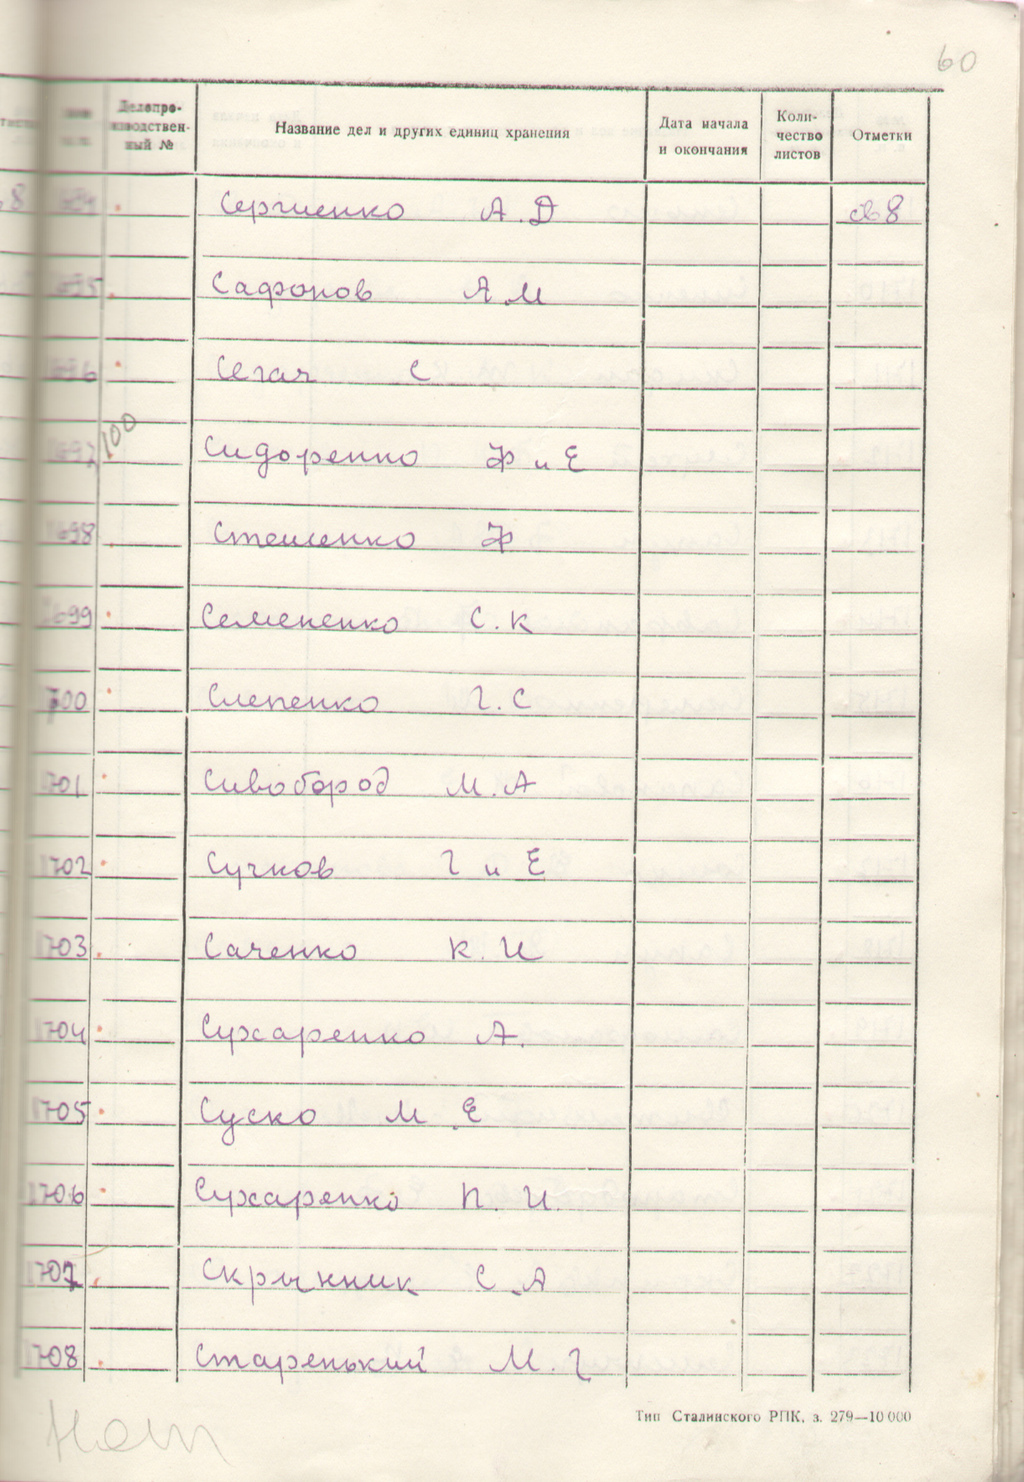 60
Делопро-
изводствен-
ный №
Название дел и других единиц хранения
Дата начала
и окончания
Коли-
чество
листов
Отметки
Сергиенко А.Д св 8
1695 Сафонов А М
1696 Сегач С
1697 100 Сидоренко Ф и Е
1698 Стешенко Ф
1699 Семененко С.К
1700 Слепенко Г.С
1701 Сивобород М.А
1702 Сучков Г и Е
1703 Саченко К.И
1704 Сухаренко А.
1705 Суско М Е
1706 Сухаренко П.И.
1707 Скрынник С.А
1708 Старенький М.Г
Тип Сталинского РПК, з. 279—10 000